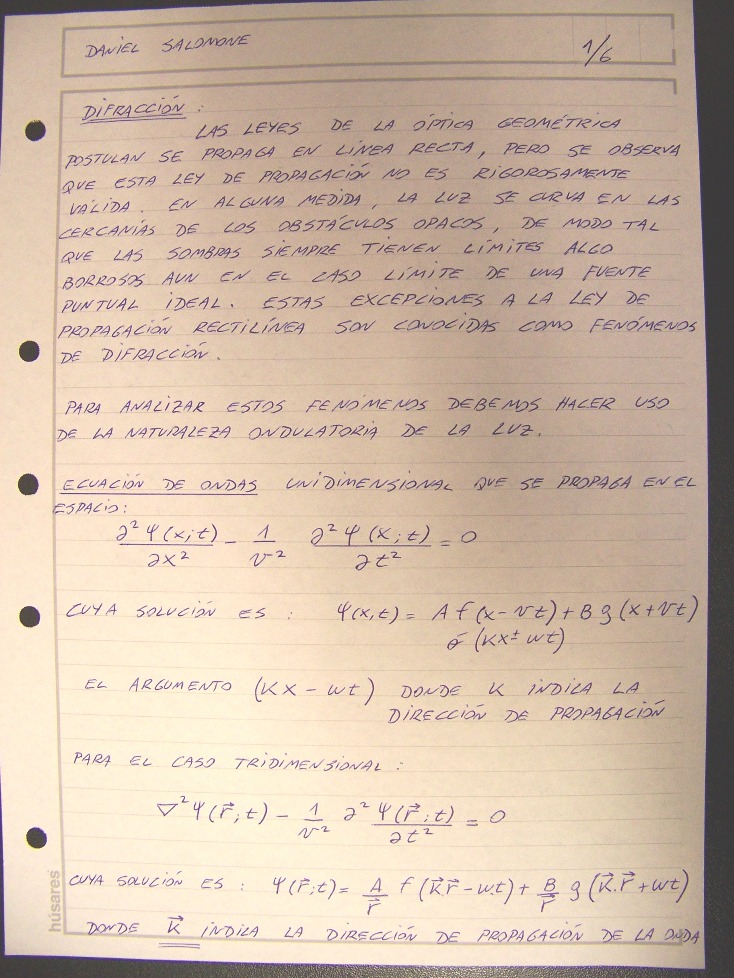 DANIEL SALOMONE 1/6
DIFRACCIÓN :
LAS LEYES DE LA ÓPTICA GEOMÉTRICA
POSTULAN SE PROPAGA EN LÍNEA RECTA, PERO SE OBSERVA
QUE ESTA LEY DE PROPAGACIÓN NO ES RIGOROSAMENTE
VÁLIDA. EN ALGUNA MEDIDA, LA LUZ SE CURVA EN LAS
CERCANIAS DE LOS OBSTÁCULOS OPACOS, DE MODO TAL
QUE LAS SOMBRAS SIEMPRE TIENEN LÍMITES ALGO
BORROSOS AUN EN EL CASO LÍMITE DE UNA FUENTE
PUNTUAL IDEAL. ESTAS EXCEPCIONES A LA LEY DE
PROPAGACIÓN RECTILÍNEA SON CONOCIDAS COMO FENÓMENOS
DE DIFRACCIÓN.
PARA ANALIZAR ESTOS FENÓMENOS DEBEMOS HACER USO
DE LA NATURALEZA ONDULATORIA DE LA LUZ.
ECUACIÓN DE ONDAS UNIDIMENSIONAL QUE SE PROPAGA EN EL
ESPACIO:
∂²Ψ(x;t)/∂x² - 1/v² ∂²Ψ(x;t)/∂t² = 0
CUYA SOLUCIÓN ES : Ψ(x,t) = A f(x-vt) + B g(x+vt)
ó (Kx ± wt)
EL ARGUMENTO (Kx - wt) DONDE K INDICA LA
DIRECCIÓN DE PROPAGACIÓN
PARA EL CASO TRIDIMENSIONAL :
∇²Ψ(r⃗;t) - 1/v² ∂²Ψ(r⃗;t)/∂t² = 0
CUYA SOLUCIÓN ES : Ψ(r⃗;t) = A/r f(k⃗.r⃗ - w.t) + B/r g(k⃗.r⃗ + wt)
DONDE k⃗ INDICA LA DIRECCIÓN DE PROPAGACIÓN DE LA ONDA
húsares